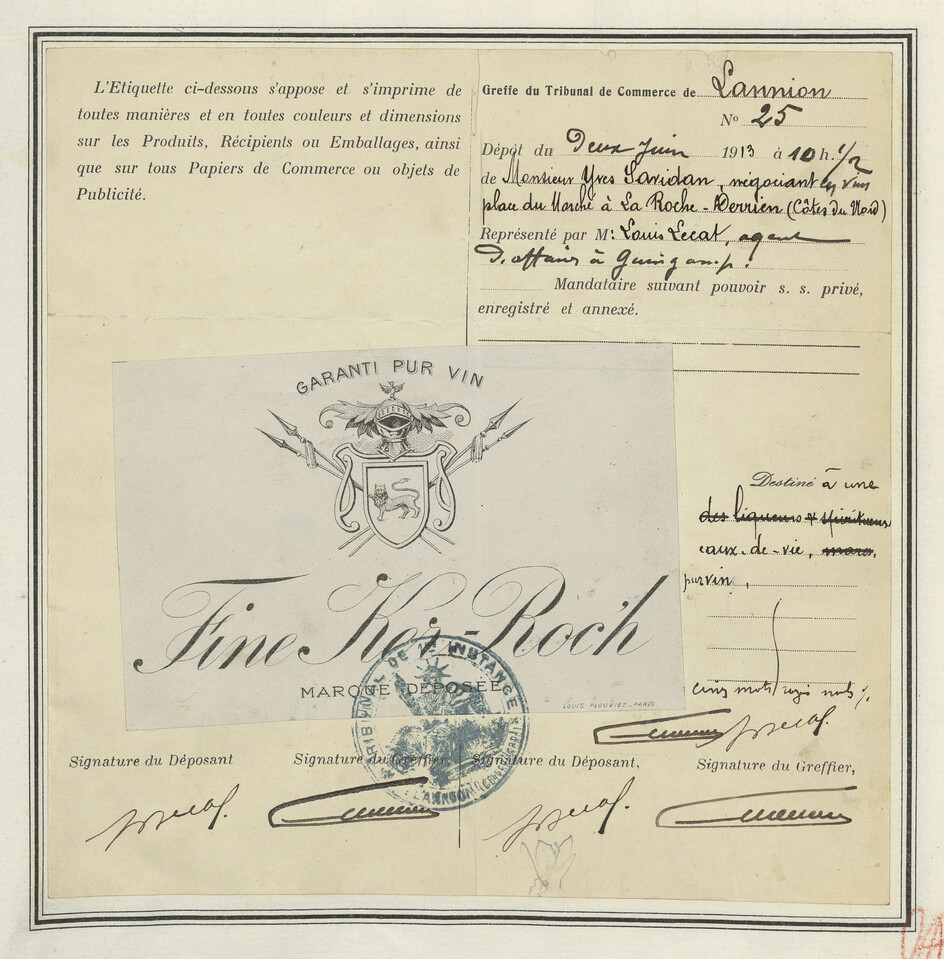 L'Etiquette ci-dessous s'appose et s'imprime de
toutes manières et en toutes couleurs et dimensions
sur les Produits, Récipients ou Emballages, ainsi
que sur tous Papiers de Commerce ou objets de
Publicité.
Greffe du Tribunal de Commerce de Lannion
No 25
Dépôt du Deux Juin 1913 à 10 h. 1/2
de Monsieur Yves Savidan, négociant en vins
place du Marché à La Roche-Derrien (Côtes du Nord)
Représenté par Mr Louis Lecat, agent
d'affaires à Guingamp.
Mandataire suivant pouvoir s. s. privé,
enregistré et annexé.
GARANTI PUR VIN
Fine Ker-Roc'h
MARQUE DEPOSÉE
LOUIS PLOUVIEZ_PARIS
TRIBUNAL DE 1re INSTANCE
LANNION
Destiné à une
des liqueurs & spiritueux
eaux-de-vie, marcs,
pur vin,
cinq mots rayés nuls
Signature du Déposant
Signature du Greffier
Signature du Déposant,
Signature du Greffier,